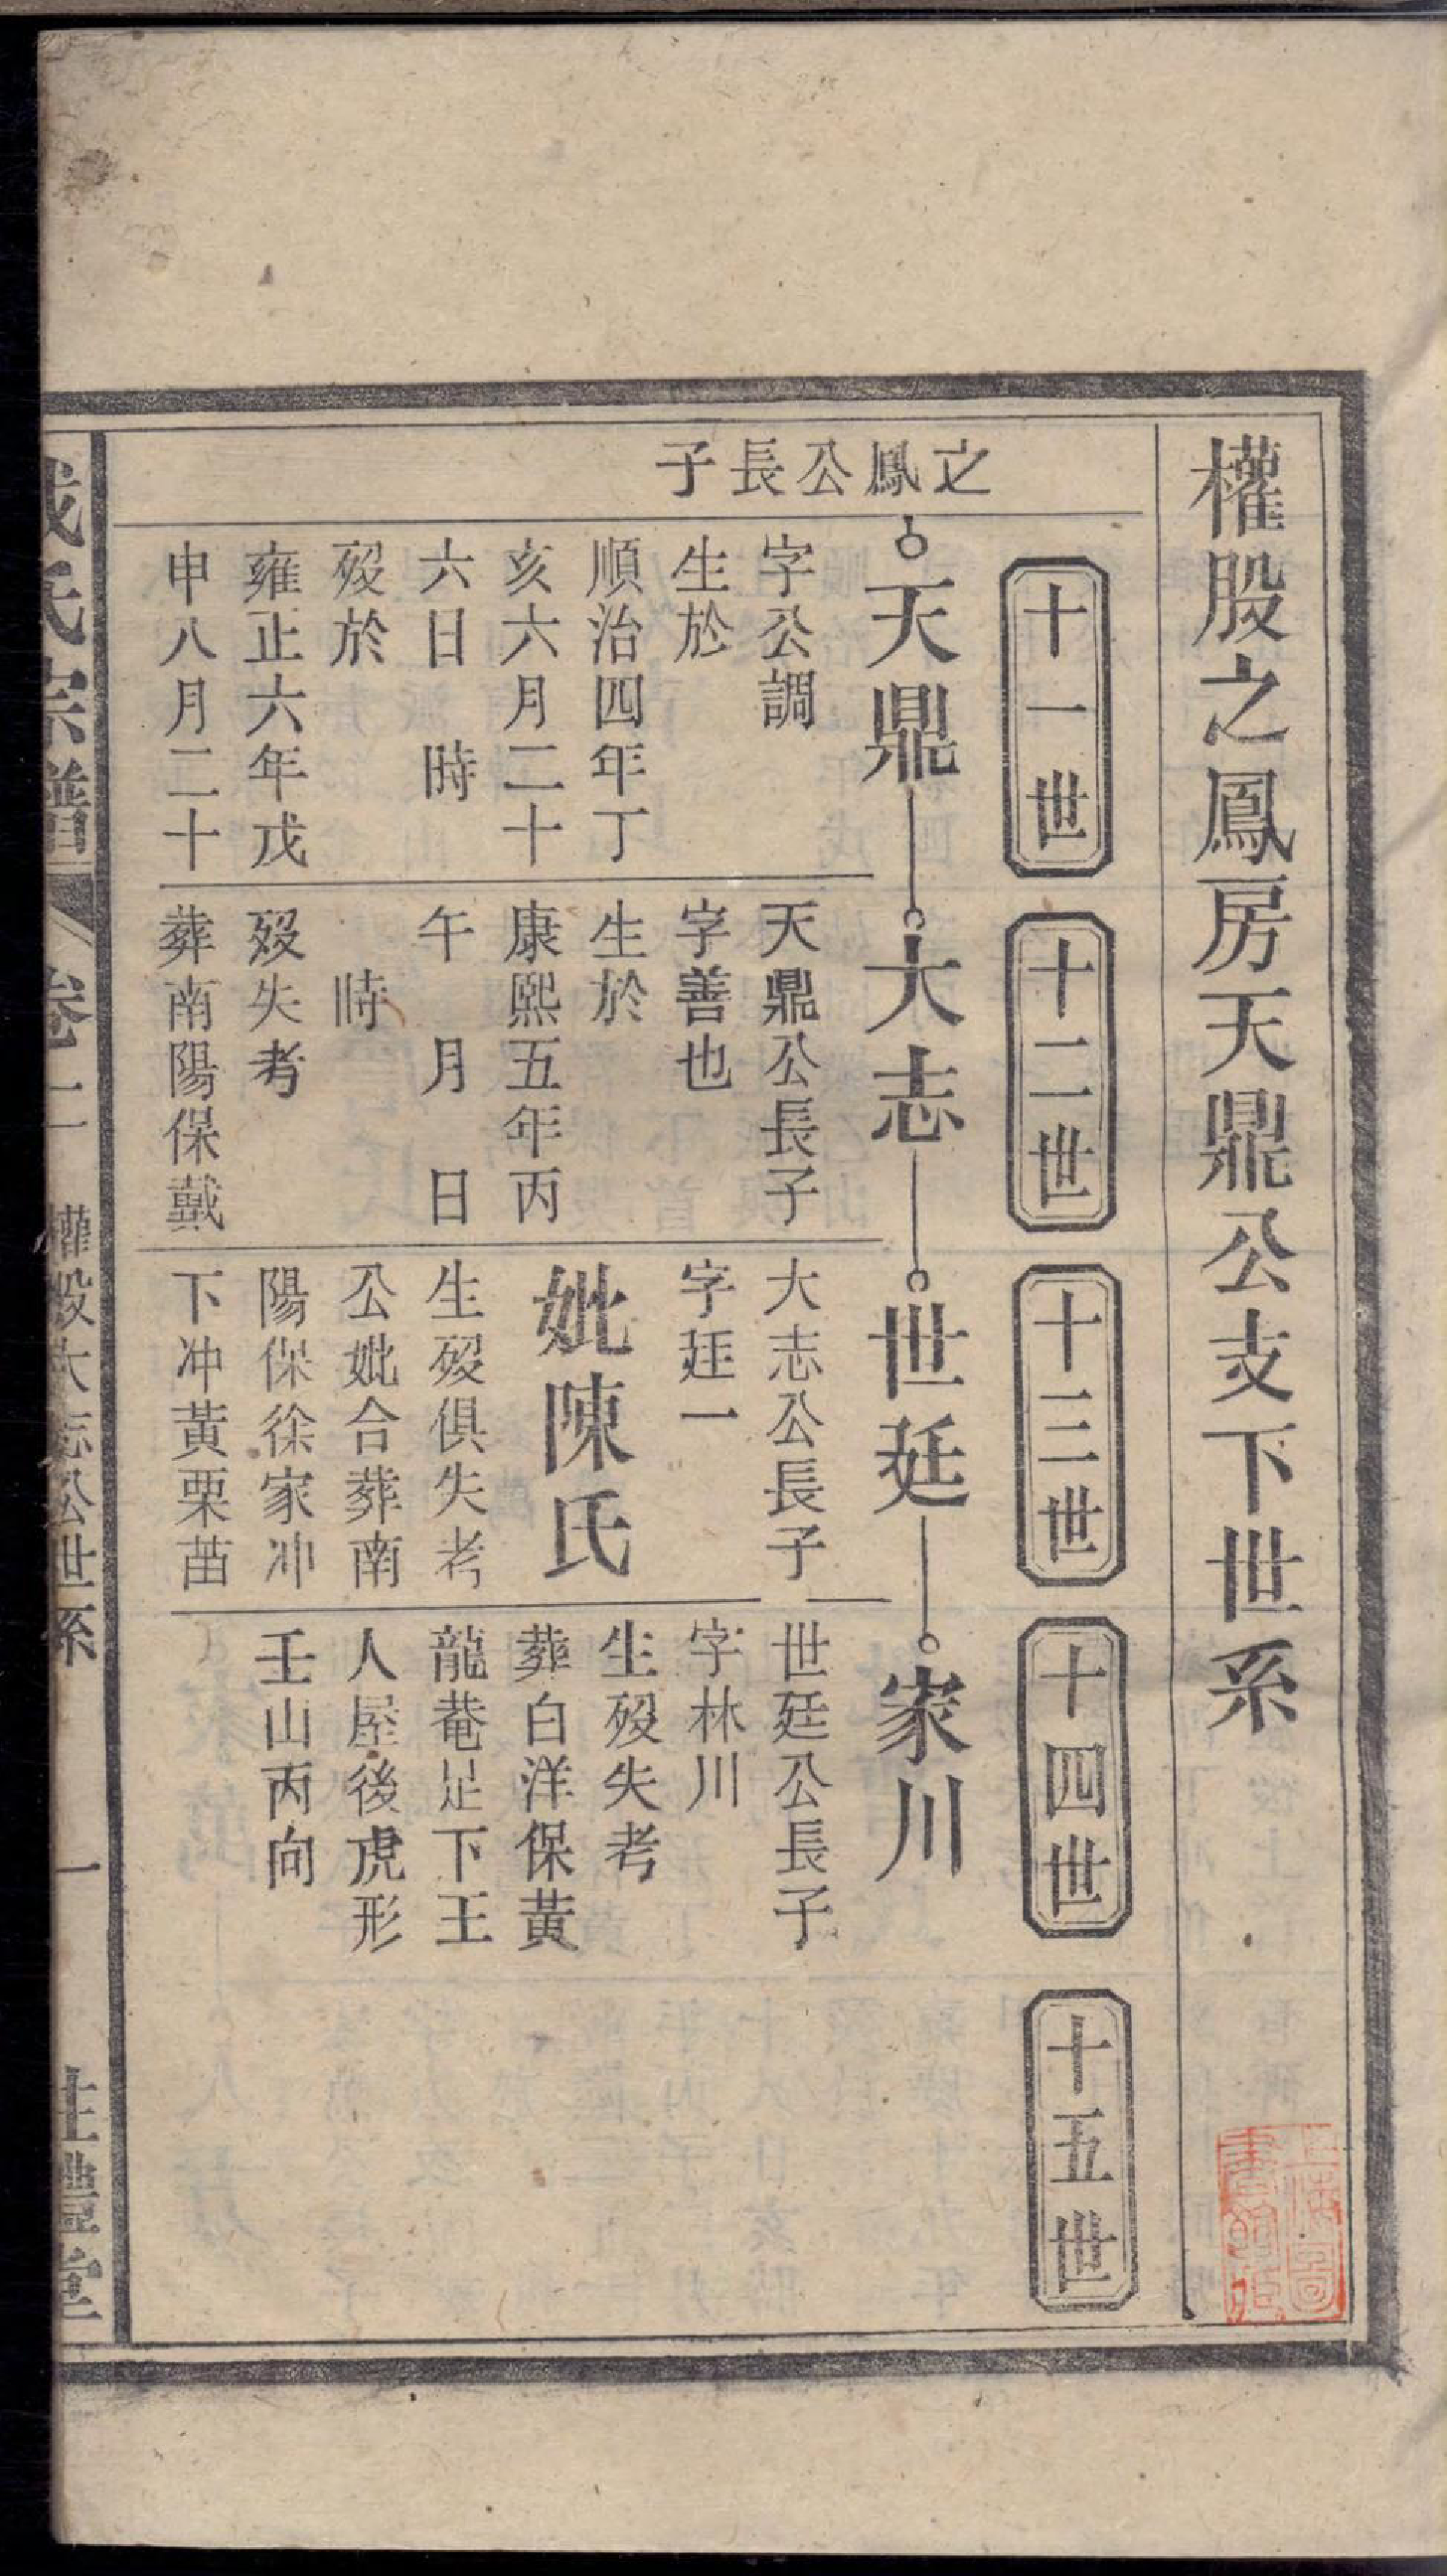 權股之鳳房天鼎公支下世系
十一世
十二世
十三世
十四世
十五世
之鳳公長子
天鼎
字公調
生於
順治四年丁
亥六月二十
六日 時
歿於
雍正六年戊
申八月二十
大志
天鼎公長子
字善也
生於
康熙五年丙
午 月 日
時
歿失考
葬南陽保戴
世廷
大志公長子
字廷一
妣陳氏
生歿俱失考
公妣合葬南
陽保徐家冲
下冲黃栗苗
家川
世廷公長子
字林川
生歿失考
葬白洋保黃
龍菴足下王
人屋後虎形
壬山丙向
氏宗譜 卷二 權股大志公世系 一 禮堂